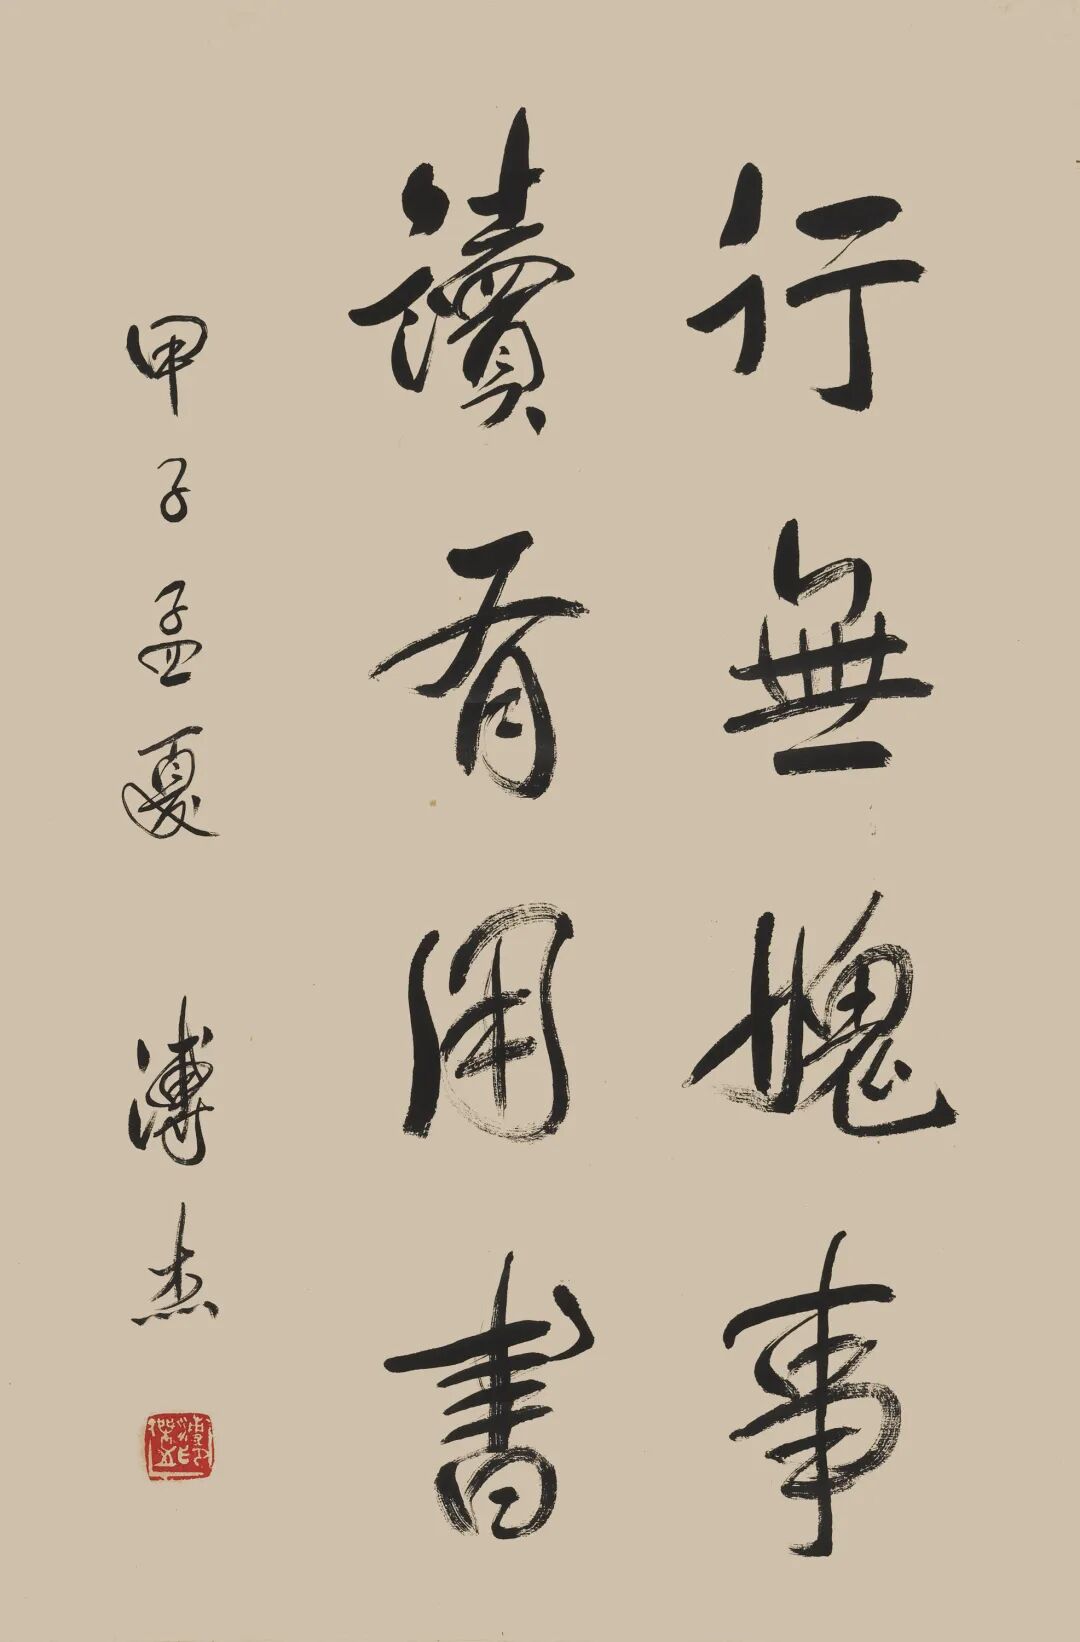 行無媿事
讀有用書
甲子孟夏 溥杰